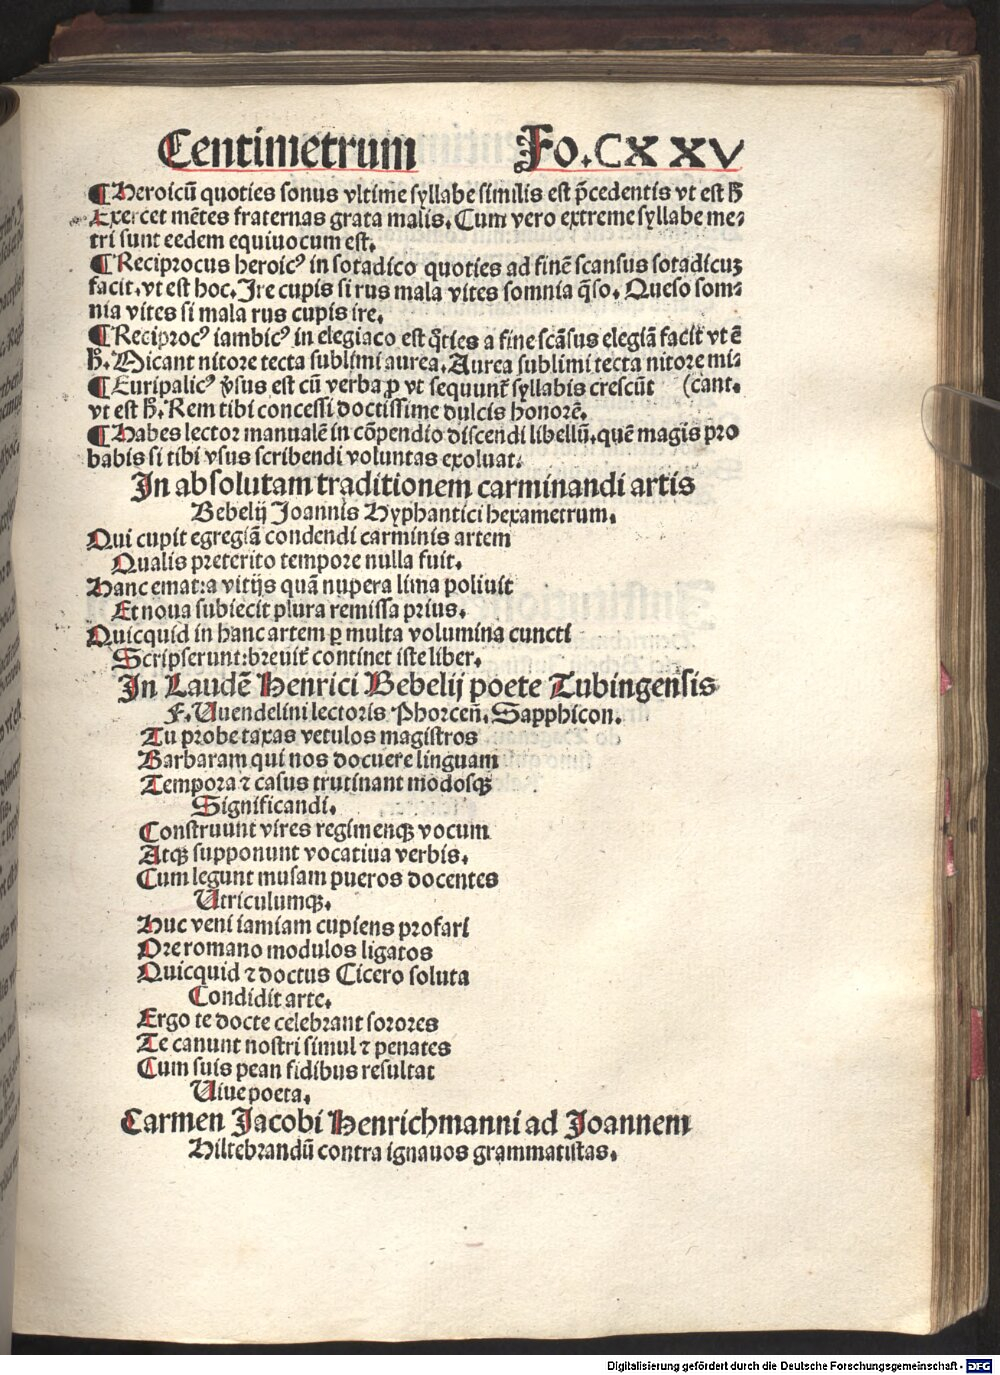 Centimetrum Fo. CXXV
¶ Heroicū quoties sonus vltime syllabe similis est p̄cedentis vt est h̄
Exercet mētes fraternas grata malis. Cum vero extreme syllabe me⸗
tri sunt eedem equiuocum est.
¶ Reciprocus heroicꝰ in sotadico quoties ad finē scansus sotadicuʒ
facit. vt est hoc. Ire cupis si rus mala vites somnia q̄so. Queso som⸗
nia vites si mala rus cupis ire.
¶ Reciprocꝰ iambicꝰ in elegiaco est q̄ties a fine scāsus elegiā facit vt ē
h̄. Micant nitore tecta sublimi aurea. Aurea sublimi tecta nitore mi⸗
¶ Euripalicꝰ v̓sus est cū verba ꝓ vt sequunt̄ syllabis crescūt (cant.
vt est h̄. Rem tibi concessi doctissime dulcis honorē.
¶ Habes lector manualē in cōpendio discendi libellū. quē magis pro
babis si tibi vsus scribendi voluntas exoluat.
In absolutam traditionem carminandi artis
Bebelij Joannis Hyphantici hexametrum.
Qui cupit egregiā condendi carminis artem
Qualis preterito tempore nulla fuit.
Hanc emat: a vitijs quā nupera lima poliuit
Et noua subiecit plura remissa prius.
Quicquid in hanc artem ꝑ multa volumina cuncti
Scripserunt: breuit̄ continet iste liber.
In Laudē Henrici Bebelij poete Tubingensis
F. Uuendelini lectoris Phorcen̄. Sapphicon.
Tu probe taxas vetulos magistros
Barbaram qui nos docuere linguam
Tempora ⁊ casus trutinant modosqꝫ
Significandi.
Construunt vires regimenqꝫ vocum
Atqꝫ supponunt vocatiua verbis.
Cum legunt musam pueros docentes
Utriculumqꝫ.
Huc veni iamiam cupiens profari
Ore romano modulos ligatos
Quicquid ⁊ doctus Cicero soluta
Condidit arte.
Ergo te docte celebrant sorores
Te canunt nostri simul ⁊ penates
Cum suis pean fidibus resultat
Uiue poeta.
Carmen Jacobi Henrichmanni ad Joannem
Hiltebrandū contra ignauos grammatistas.
Digitalisierung gefördert durch die Deutsche Forschungsgemeinschaft - DFG